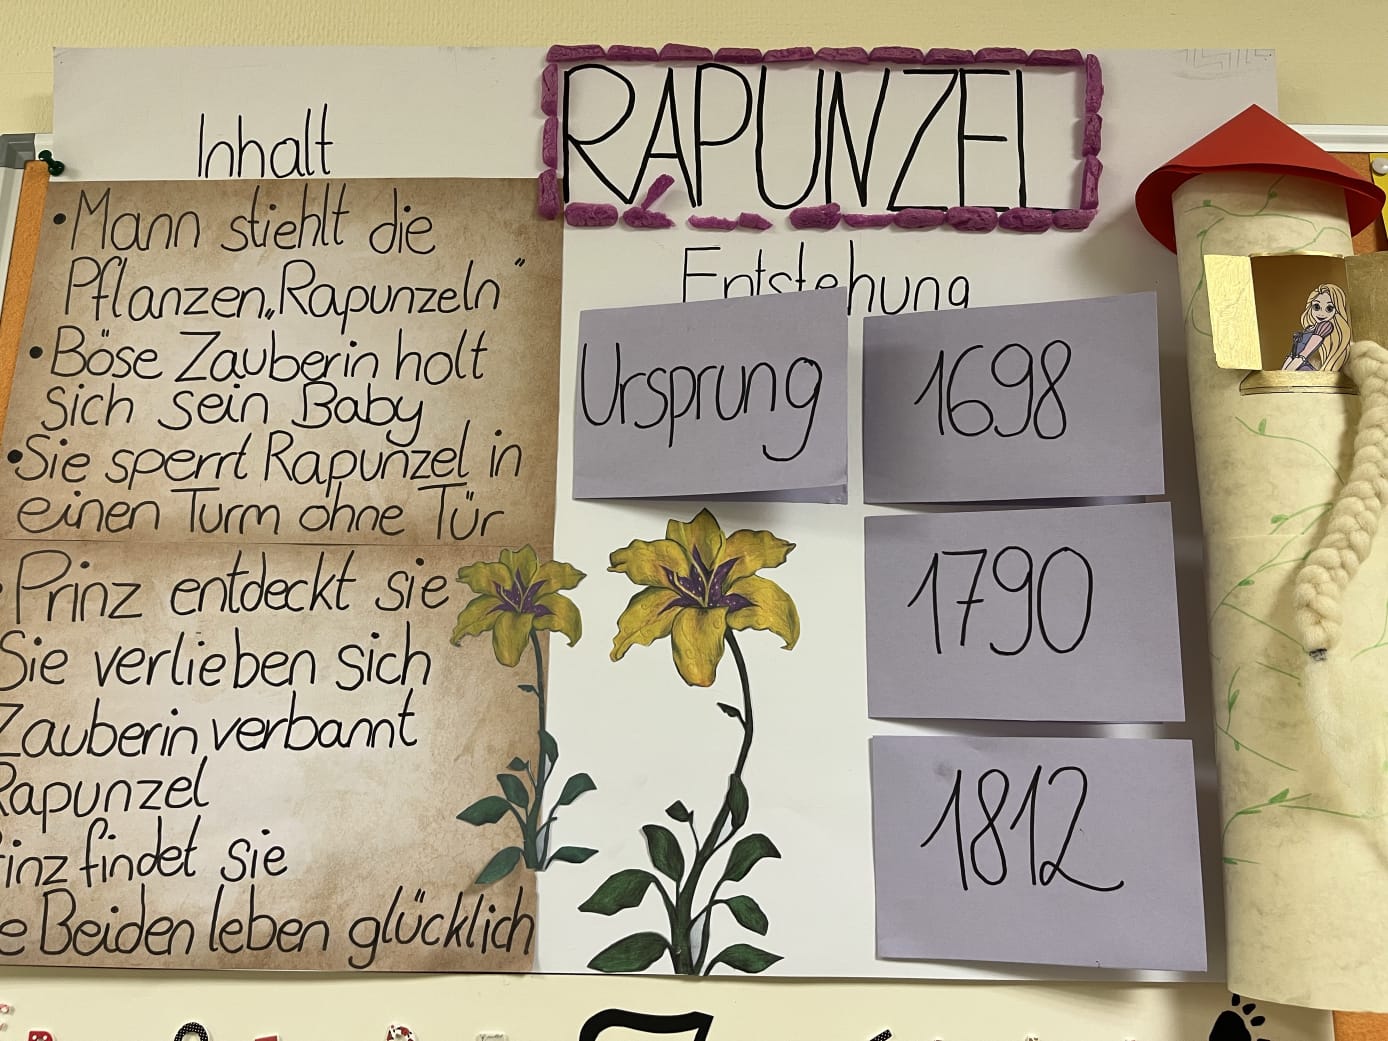 RAPUNZEL
Inhalt
• Mann stiehlt die
Pflanzen „Rapunzeln“
• Böse Zauberin holt
sich sein Baby
• Sie sperrt Rapunzel in
einen Turm ohne Tür
• Prinz entdeckt sie
Sie verlieben sich
Zauberin verbannt
Rapunzel
findet sie
Beiden leben glücklich
Entstehung
Ursprung
1698
1790
1812